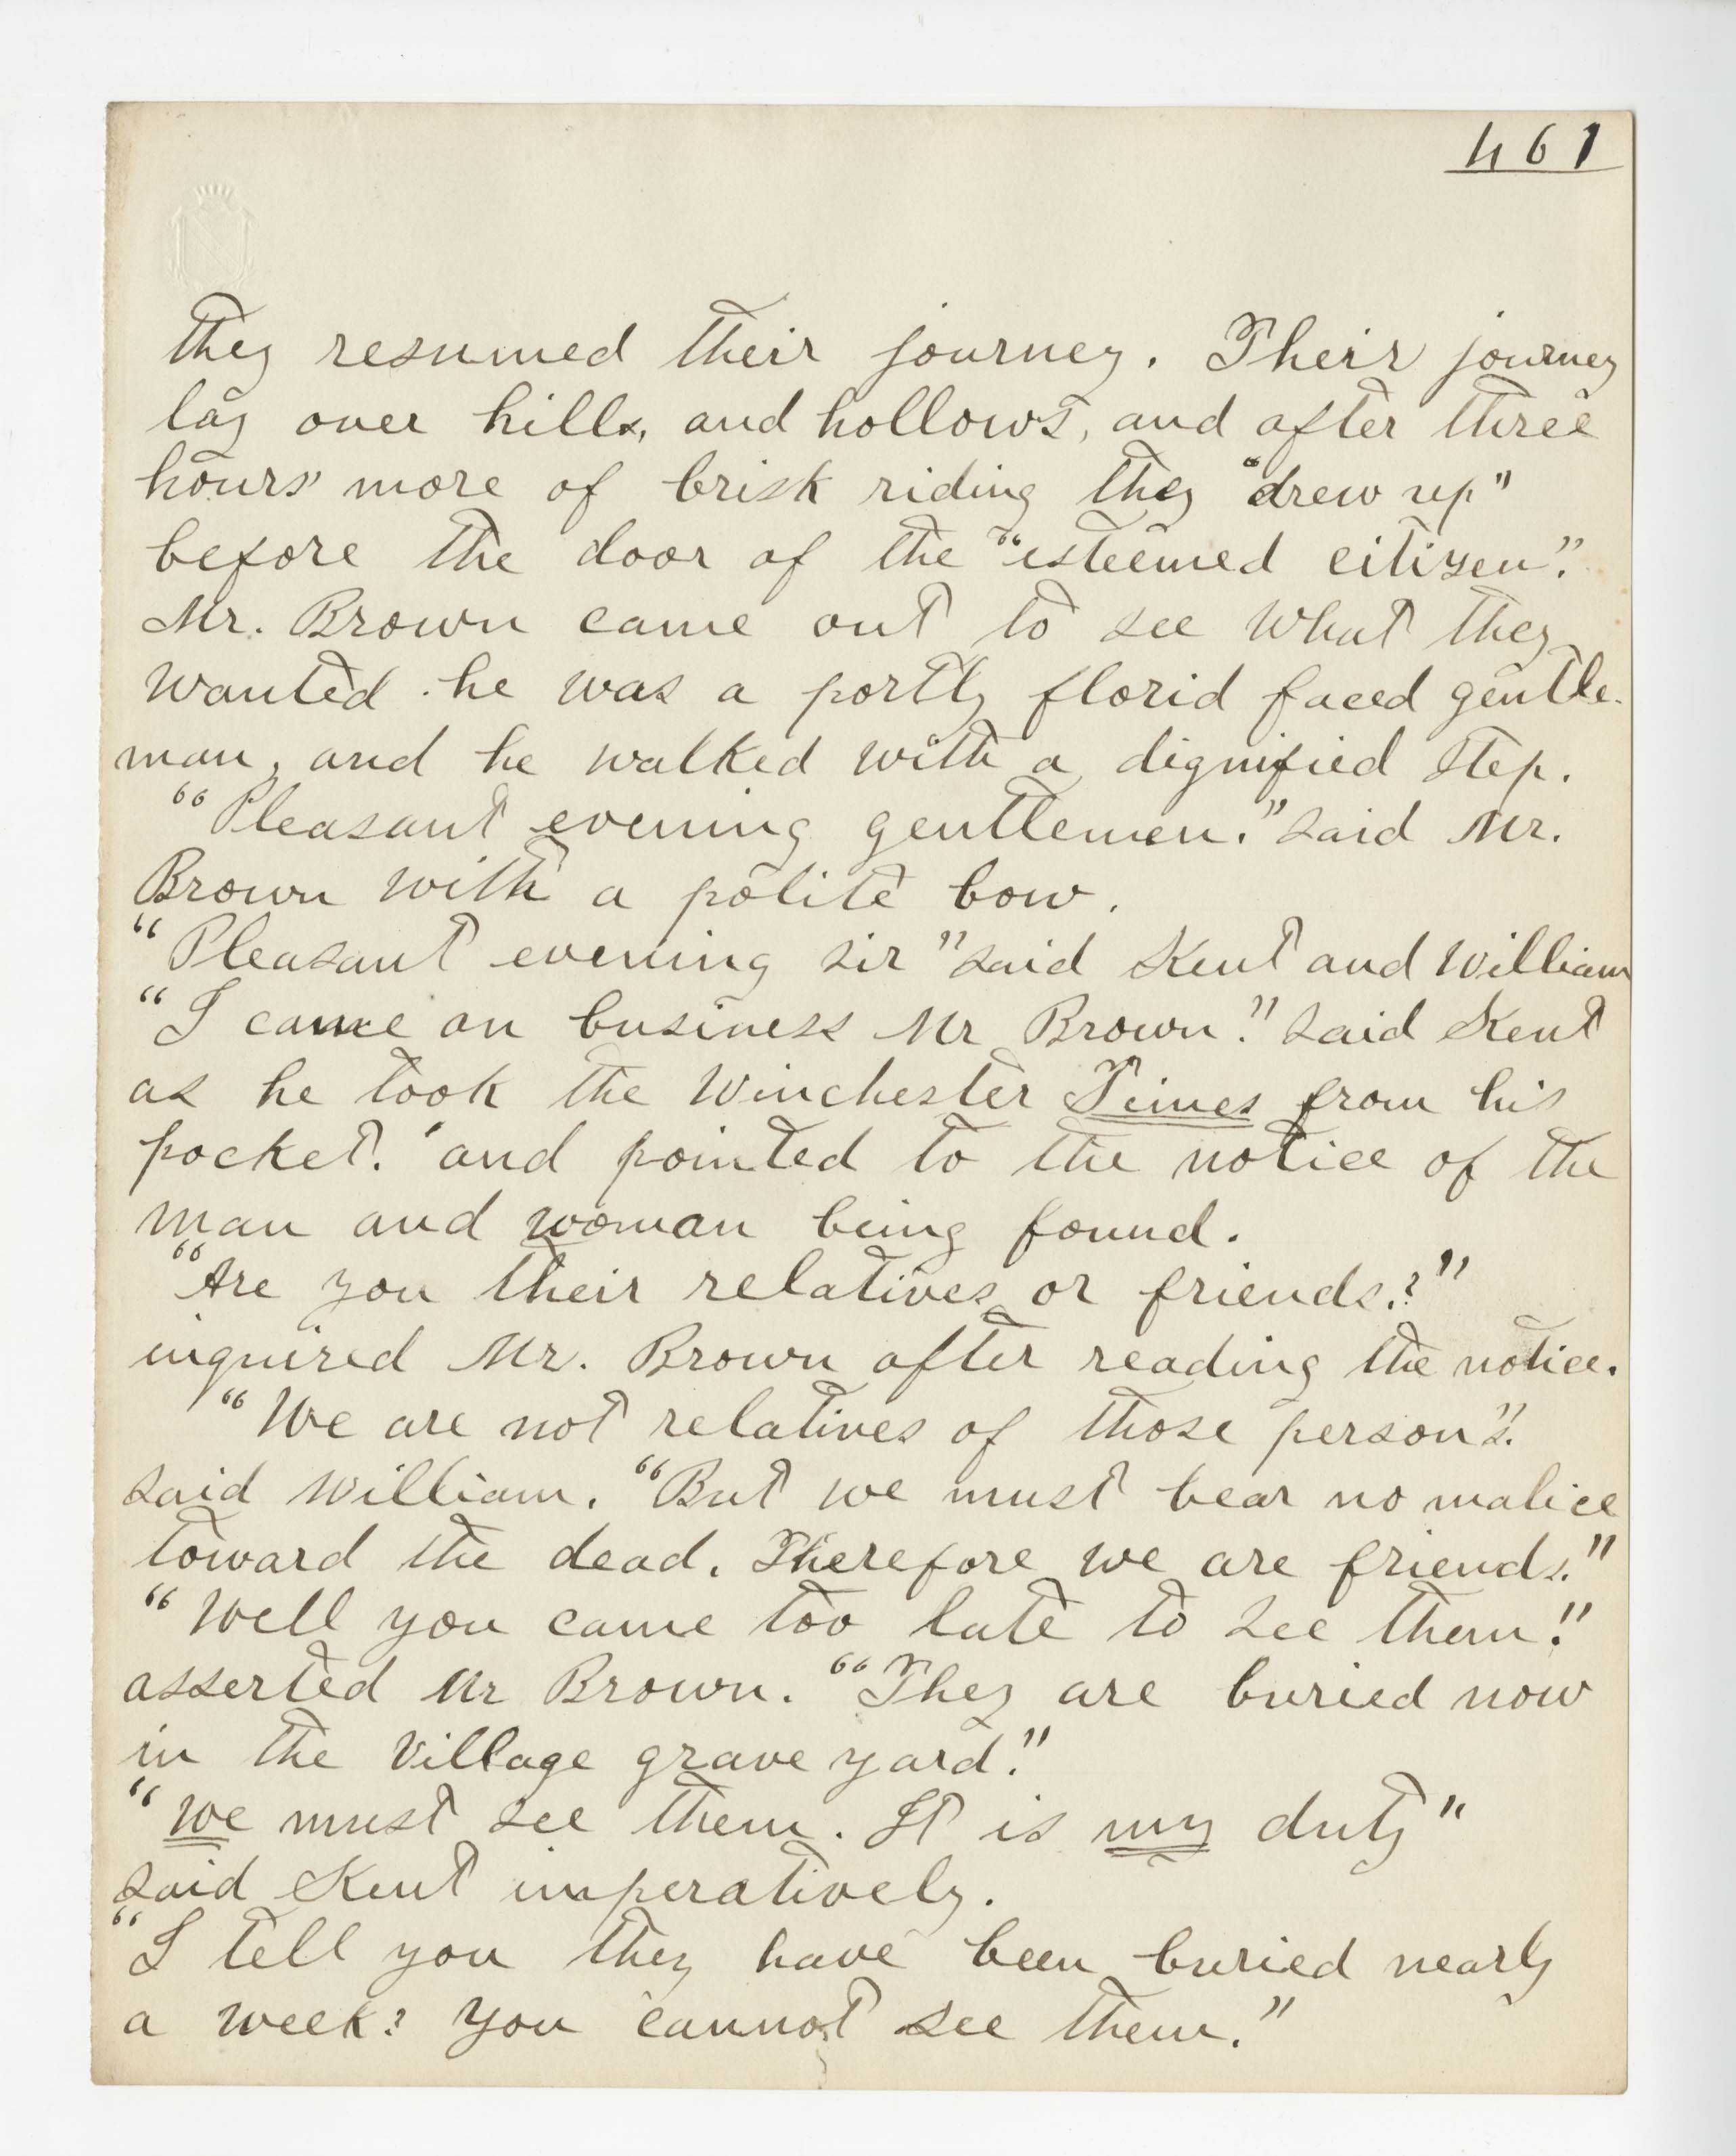 461
they resumed their journey. Their journey
lay over hills, and hollows, and after three
hours' more of brisk riding they "drew up"
before the door of the "esteemed citizen".
Mr. Brown came out to see what they
wanted. he was a portly florid faced gentle-
man, and he walked with a dignified step.
"Pleasant evening gentlemen." said Mr.
Brown with a polite bow.
"Pleasant evening sir" said Kent and William
"I came on business Mr Brown." said Kent
as he took the Winchester Times from his
pocket. and pointed to the notice of the
man and woman being found.
"Are you their relatives or friends.?"
inquired Mr. Brown after reading the notice.
"We are not relatives of those persons".
said William. "But we must bear no malice
toward the dead. Therefore we are friends."
"Well you came too late to see them!"
asserted Mr Brown. "They are buried now
in the village grave yard."
"we must see them. It is my duty"
said Kent imperatively.
"I tell you they have been buried nearly
a week? you cannot see them."